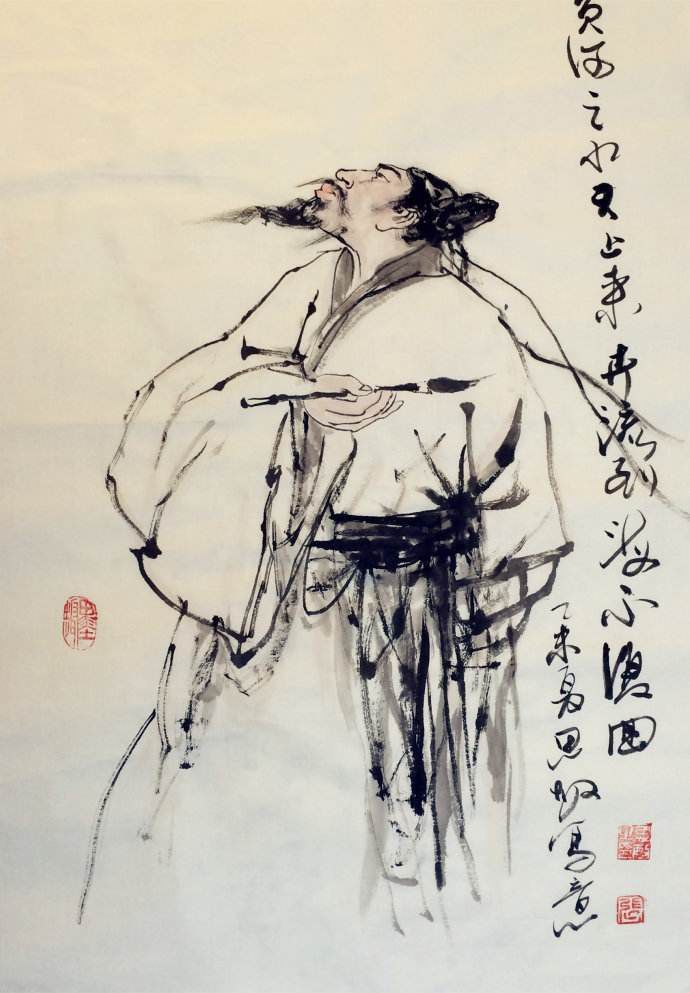 黄河之水天上来奔流到海不复回
乙未夏思敏写意
張